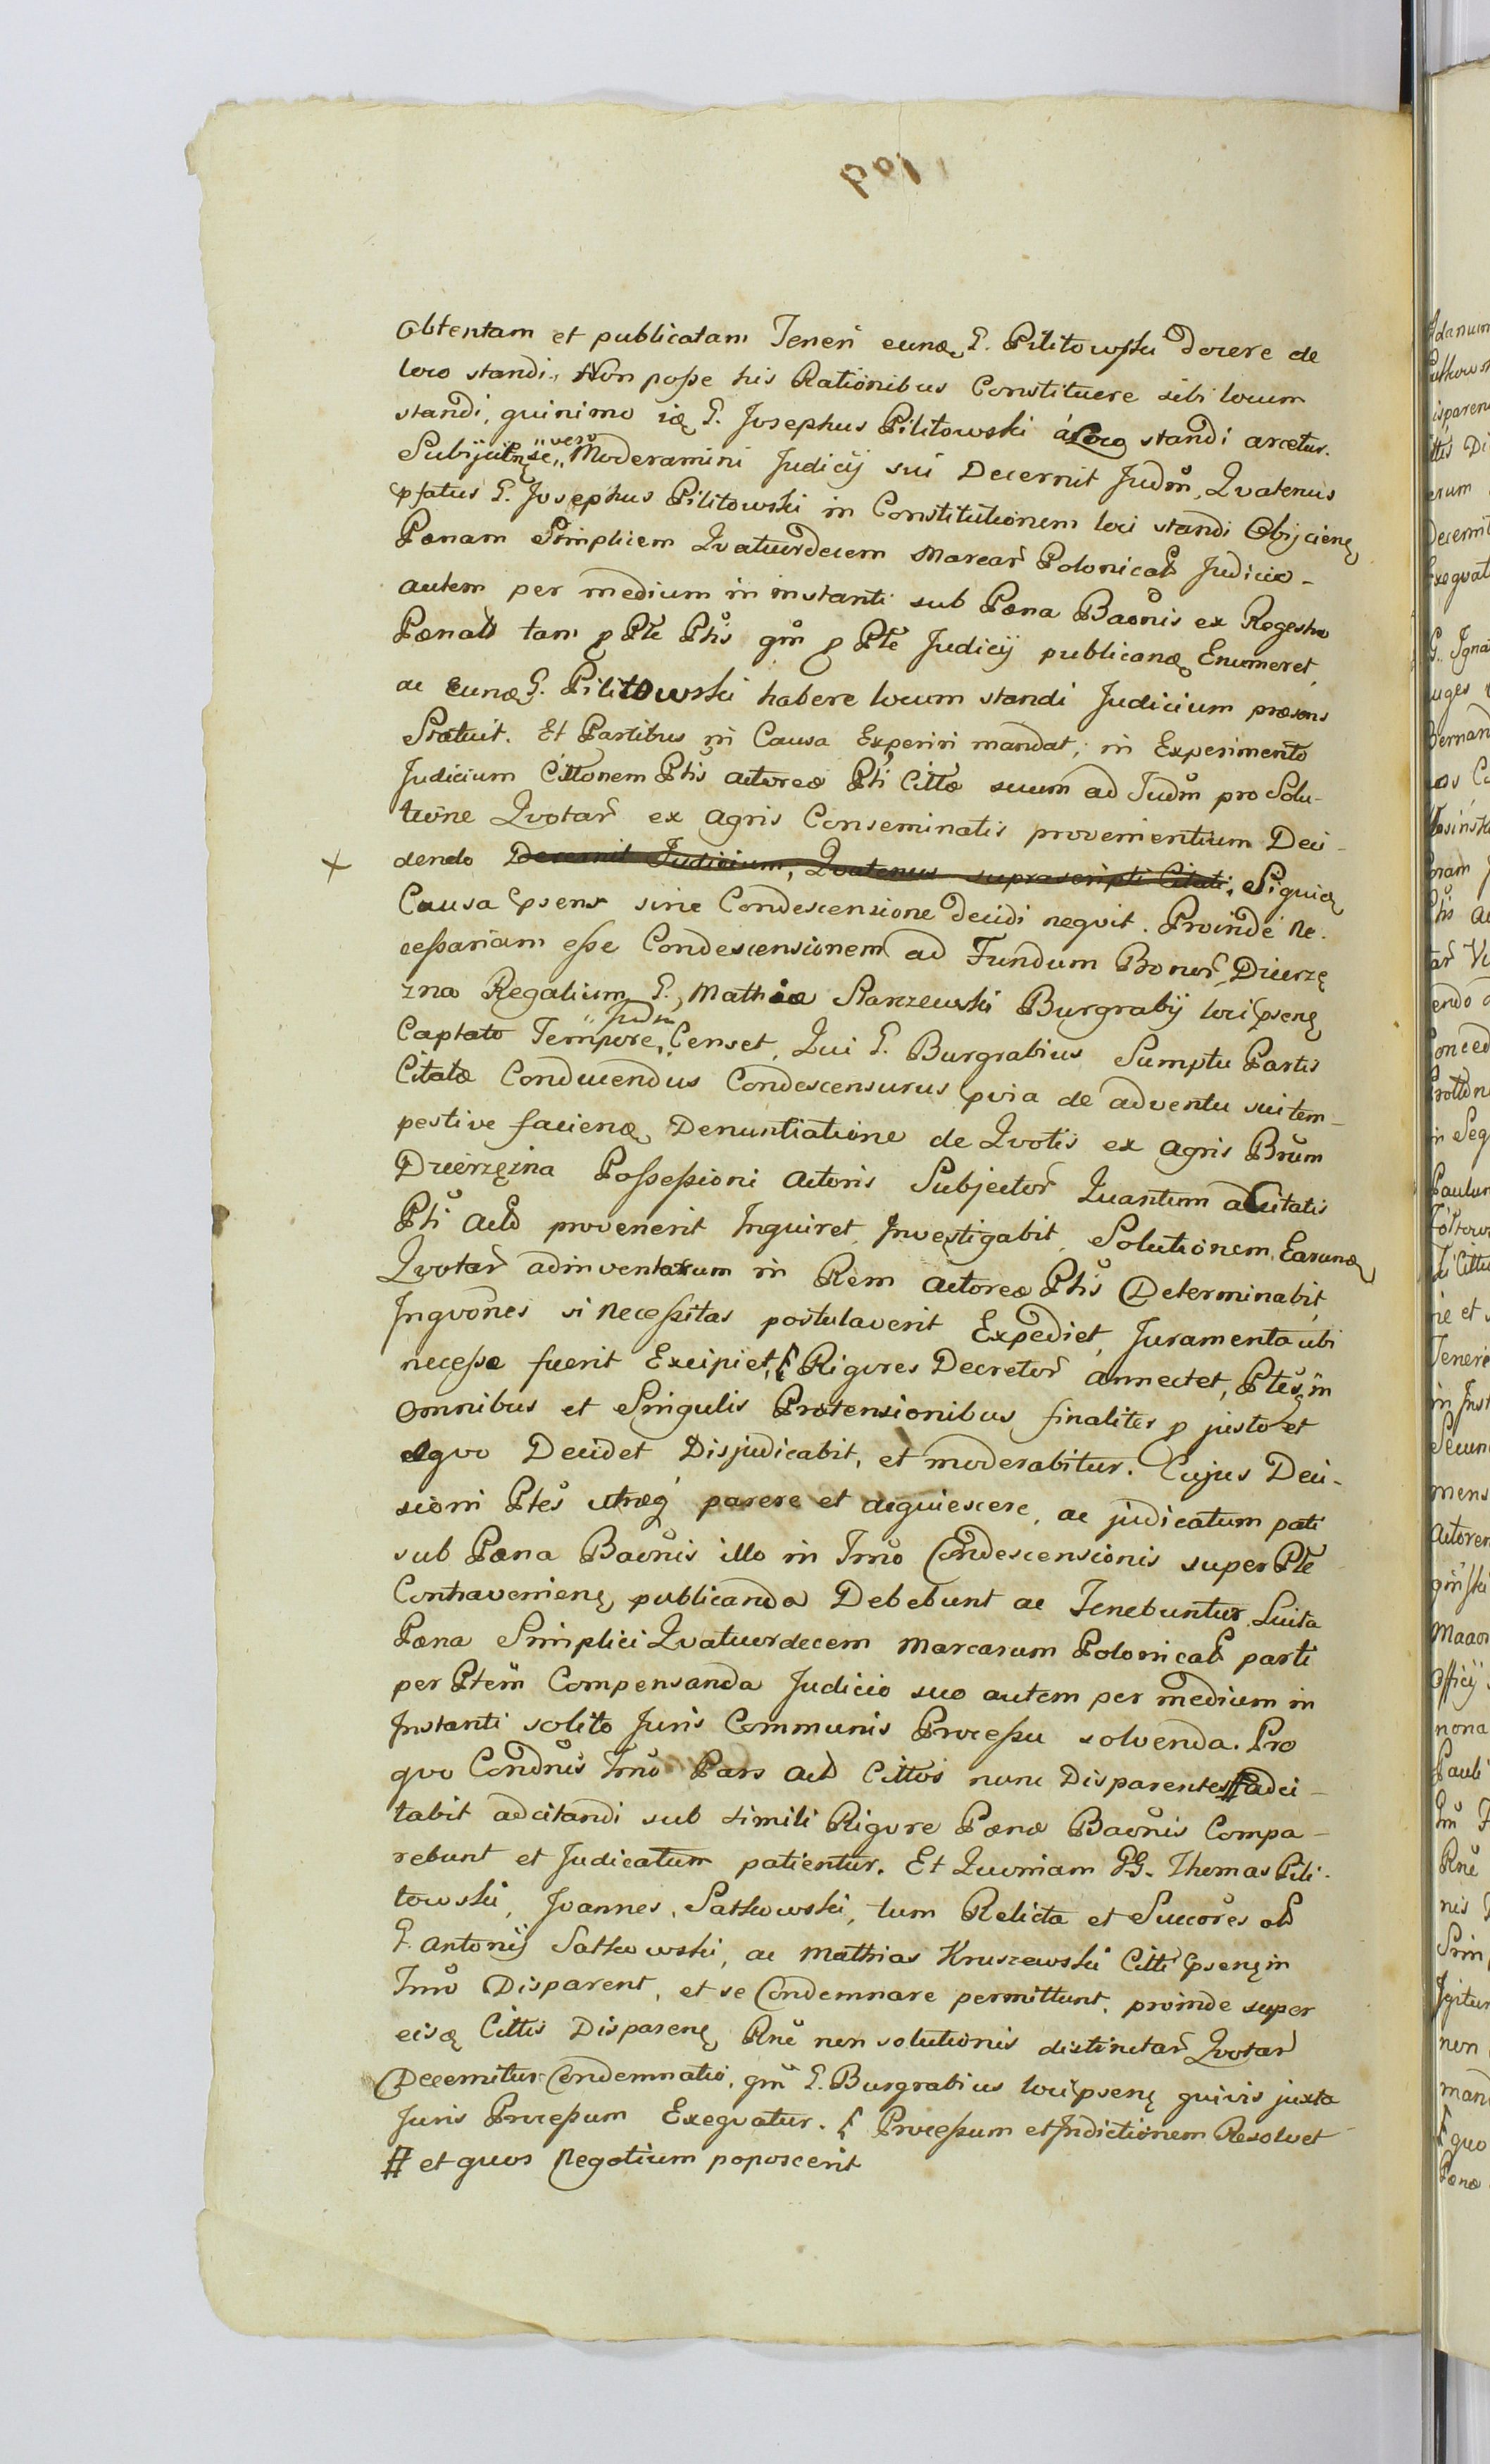 199
Obtentam et publicatam Teneri eunq G. Pilitowski docere de
loco standi, Non posse his Rationibus Constituere sibi locum
standi, quinimo iq G. Josephus Pilitowski á Loco standi arcetur.
Subijcien se vero Moderamini Judicij sui Decernit Judm, Qvatenus
pfatus G. Josephus Pilitowski in Constitutionem loci standi Obijcienq
Pænam Simplicem Qvatuordecem Marcar Polonical Judicio-
autem per medium in instanti sub Pæna Baonis ex Regestro
Pænali tam p Pte Ptis qm p Pte Judicij publicanq Enumeret,
ac Eunq G. Pilitowski habere locum standi Judicium præsens
Statuit. Et Partibus in Causa Experiri mandat, in Experimento
Judicium Cittonem Ptis actoreæ Pti Cittæ suum ad Judm pro Solu-
tione Qvotar ex agris Conseminatis provenientium Deci-
× dendo Decernit Judicium, Qvatenus suprascripti Citati, Siquiq
Causa psens sine Condescensione decidi neqvit. Proinde Ne-
cessariam esse Condescensionem ad Fundum Bonor Dwerzę
zna Regalium G. Mathiæ Skarzewski Burgrabij loci psenq
Captato Tempore, Judm Censet, Qui G. Burgrabius Sumptu Partis
Citatæ Conducendus Condescensurus pvia de adventu sui tem-
pestive facienq Denuntiatione de Qvotis ex agris Brum
Dwerzęzna Possessioni actoris Subjector Quantum a Citatis
Pti act provenerit Inquiret, Investigabit, Solutionem Earunq
Qvotar adinventarum in Rem actoreæ Ptis Determinabit,
Inqvones si necessitas postulaverit Expediet, Juramenta ubi
necesse fuerit Excipiet, ʃ Rigores Decretor annectet, Ptes in
omnibus et Singulis Prætensionibus finaliter p justo et
æqvo Decidet Disjudicabit, et moderabitur. Cujus Deci-
sioni Ptes utræq parere et acquiescere, ac judicatum pati
sub Pæna Baonis illo in Tmo Condescensionis super Pte
Contravenienq publicanda Debebunt ac Tenebuntur. Luita
Pæna Simplici Qvatuordecem Marcarum Polonical parti
per Ptem Compensanda Judicio suo autem per medium in
Instanti solito Juris Communis Processu solvenda. Pro
qvo Condnis Tmo Pars act Cittos nunc Disparentes # adci-
tabit adcitandi sub simili Rigore Pænæ Baonis Compa-
rebunt et Judicatum patientur. Et Quoniam GG. Thomas Pili-
towski, Joannes Satkowski, tum Relicta et Succores ol
G. Antonij Satkowski, ac Mathias Kruszewski Citti psenq in
Tmo Disparent, et se Condemnare permittunt, proinde super
eisq Cittis Disparenq Rne non solutionis distinctar Qvotar
Decernitur Condemnatio, qm G. Burgrabius loci psenq quivis juxta
Juris Processum Exeqvatur. ʃ Processum et Indictionem Resolvet
# et quos negotium poposcerit